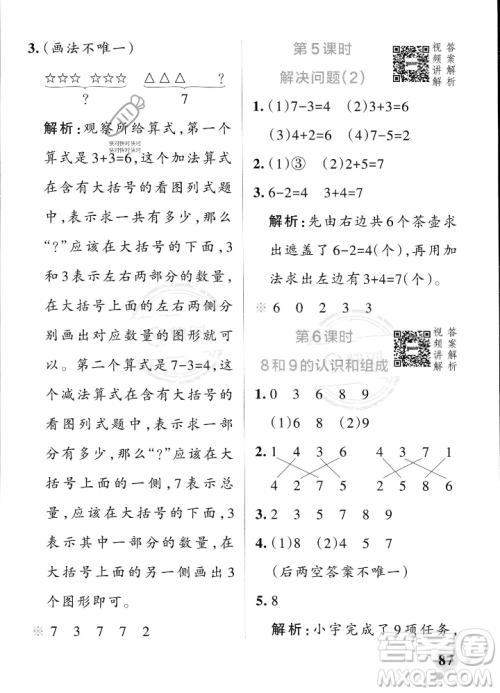 3.(画法不唯一)
☆☆☆ ☆☆☆ △△△ ?
? 7
解析:观察所给算式,第一个
算式是3+3=6,这个加法算式
在含有大括号的看图列式题
中,表示求一共有多少,那么
“?”应该在大括号的下面,3
和3表示左右两部分的数量,
在大括号上面的左右两侧分
别画出对应数量的图形就可
以。第二个算式是7-3=4,这
个减法算式在含有大括号的
看图列式题中,表示求一部
分有多少,那么“?”应该在大
括号上面的一侧,7表示总
量,应该在大括号的下面,3
表示其中一部分的数量,应
该在大括号上面的另一侧画
3个图形即可。
※ 7 3 7 7 2
第5课时
解决问题(2)
视频讲解
答案解析
1.(1)7-3=4 (2)3+3=6
(3)2+5=7 (4)6-2=4
2.(1)③ (2)5
3.6-2=4 3+4=7
解析:先由右边共6个茶壶求
出遮盖了6-2=4(个),再用加
法求出左边有3+4=7(个)。
※ 6 0 2 3 3
第6课时
8和9的认识和组成
视频讲解
答案解析
1.0 3 6 8 9
2.1 5 4 4 3 7 1
4 3 4 2 5 8 6
3.2 3 5 7 8 9
4.(1)8 (2)9 4 5
(后两空答案不唯一)
5.8
解析:小宇完成了9项任务,
87